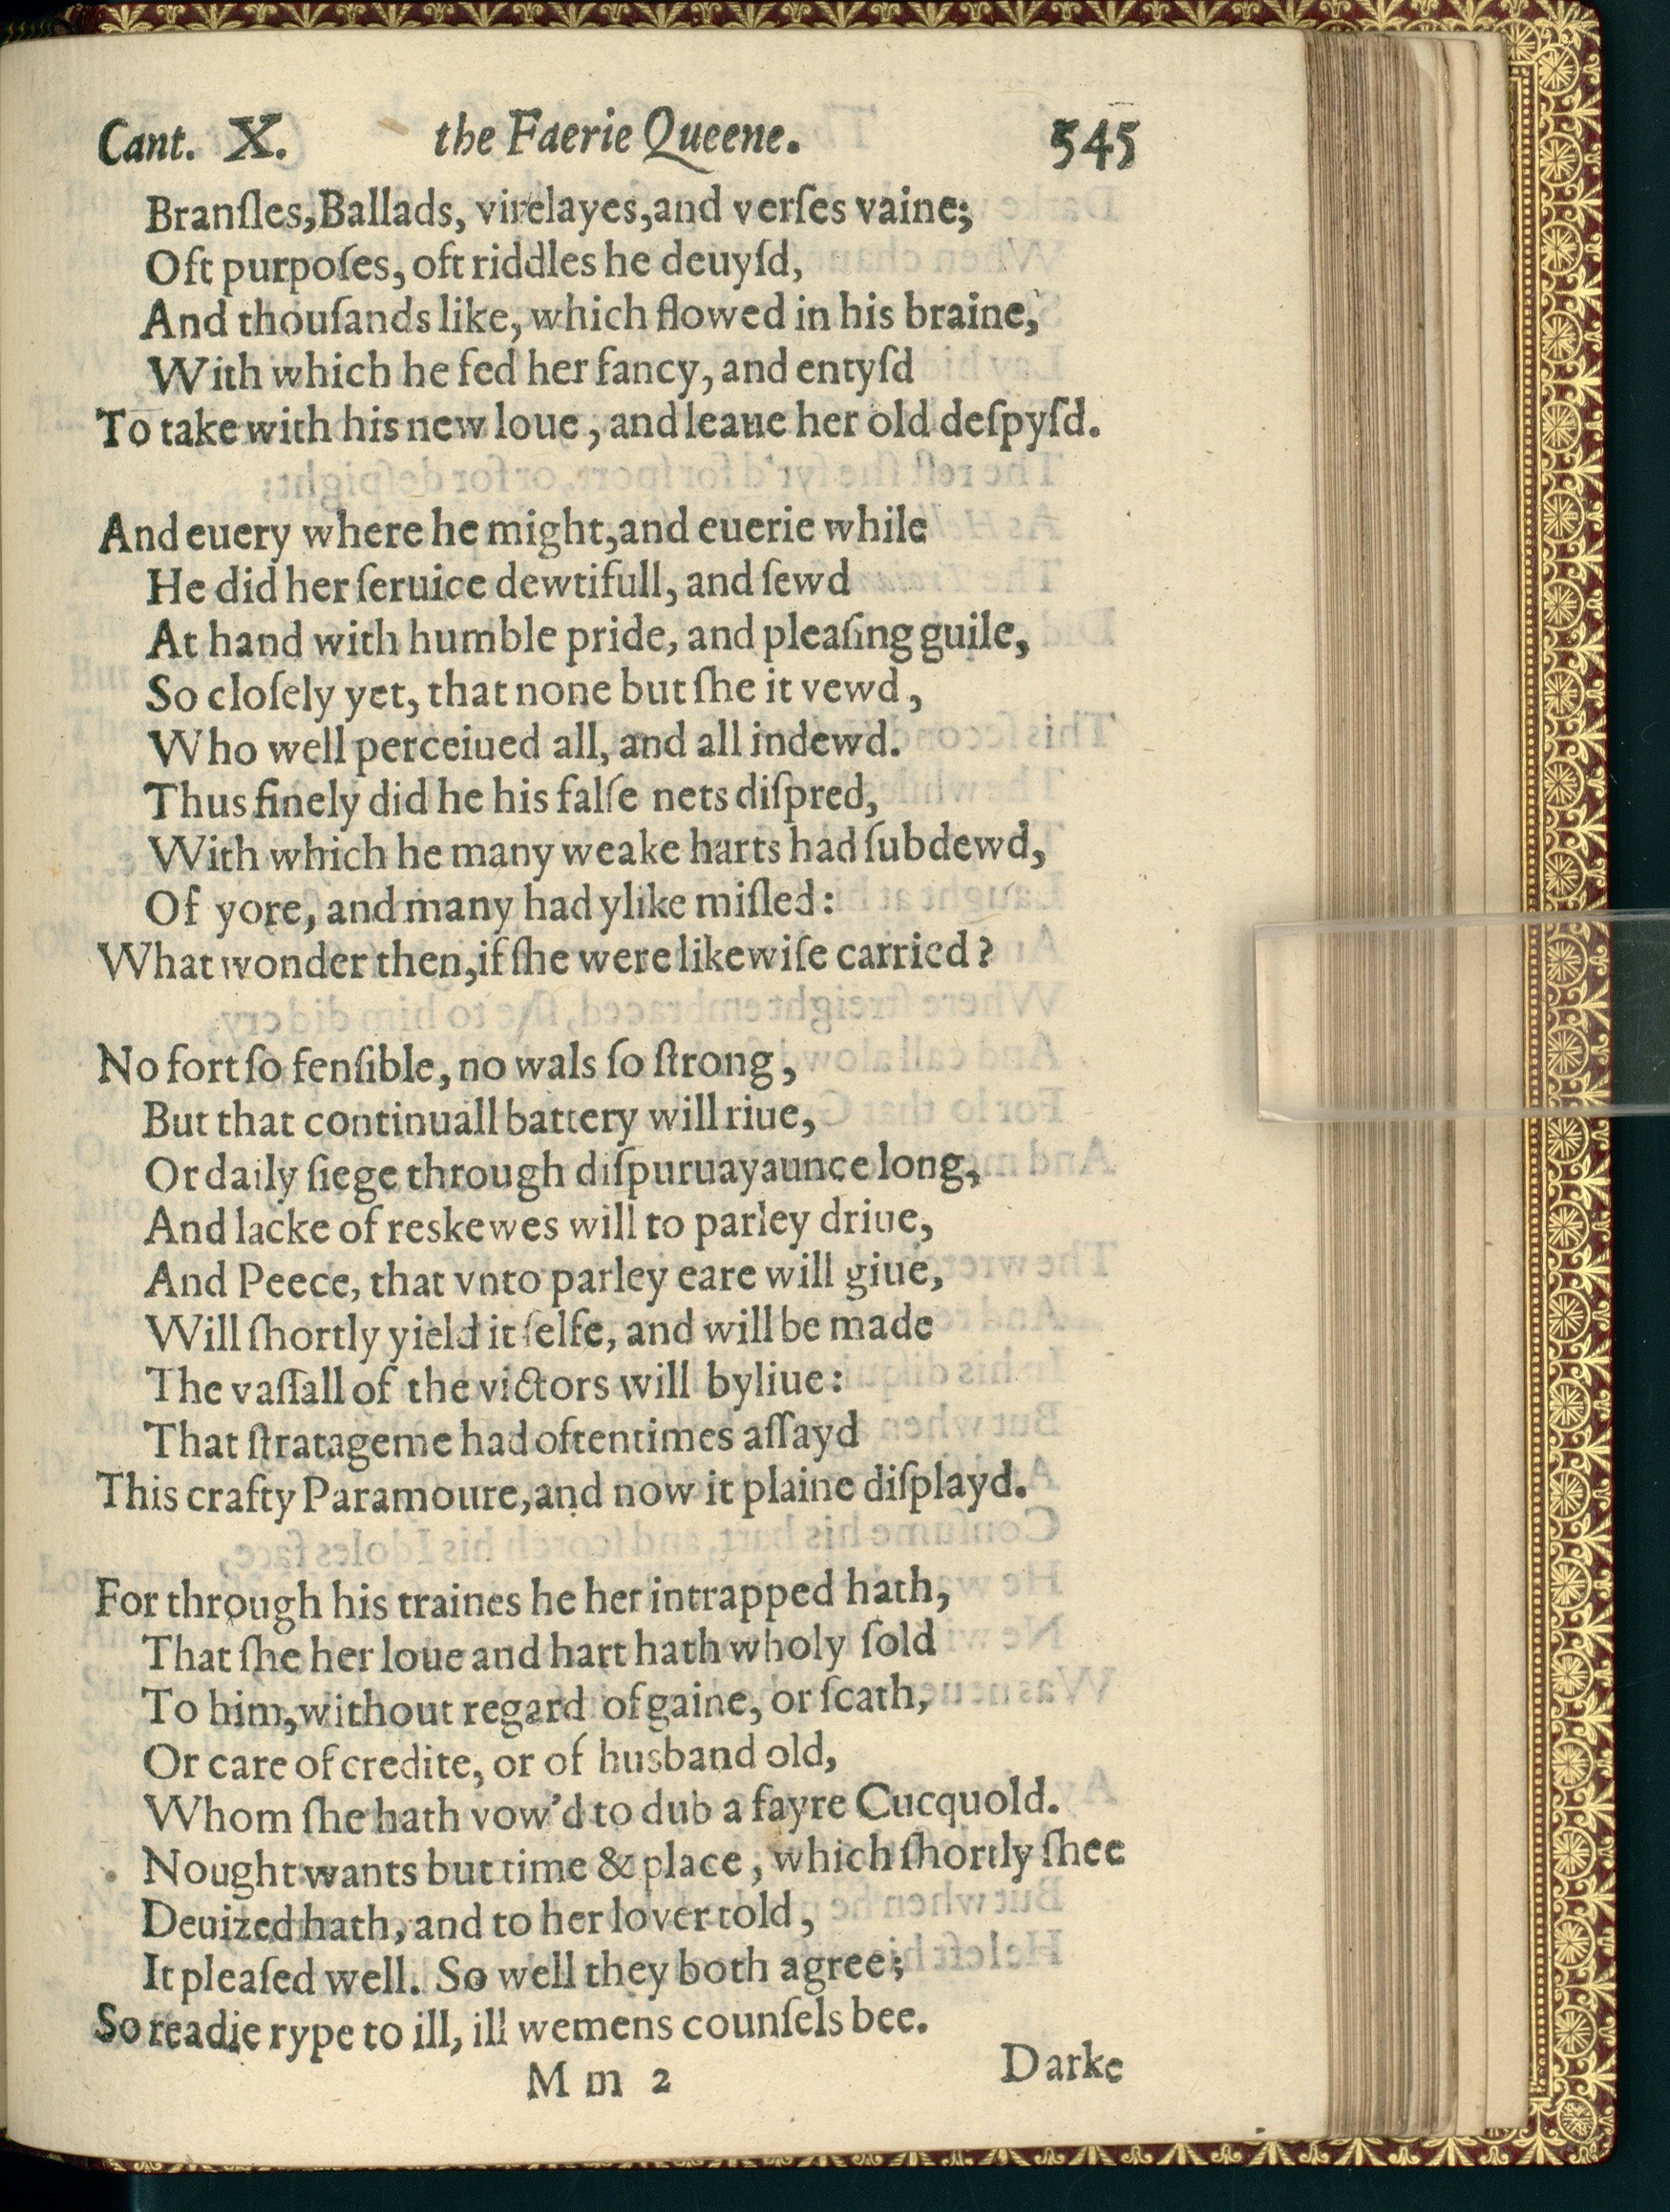 Cant. X. the Faerie Queene. 545
Branſles, Ballads, virelayes, and verſes vaine;
Oft purpoſes, oft riddles he deuyſd,
And thouſands like, which flowed in his braine,
With which he fed her fancy, and entyſd
To take with his new loue, and leaue her old deſpyſd.
And euery where he might, and euerie while
He did her ſeruice dewtifull, and ſewd
At hand with humble pride, and pleaſing guile,
So cloſely yet, that none but ſhe it vewd,
Who well perceiued all, and all indewd.
Thus finely did he his falſe nets diſpred,
With which he many weake harts had ſubdewd,
Of yore, and many had ylike miſled:
What wonder then, if ſhe were likewiſe carried?
No fort ſo fenſible, no wals ſo ſtrong,
But that continuall battery will riue,
Or daily ſiege through diſpuruayaunce long,
And lacke of reskewes will to parley driue,
And Peece, that vnto parley eare will giue,
Will ſhortly yield it ſelfe, and will be made
The vaſſall of the victors will byliue:
That ſtratageme had oftentimes aſſayd
This crafty Paramoure, and now it plaine diſplayd.
For through his traines he her intrapped hath,
That ſhe her loue and hart hath wholy ſold
To him, without regard of gaine, or ſcath,
Or care of credite, or of husband old,
Whom ſhe hath vow'd to dub a fayre Cucquold.
Nought wants but time & place, which ſhortly ſhee
Deuized hath, and to her lover told,
It pleaſed well. So well they both agree;
So readie rype to ill, ill wemens counſels bee.
M m 2 Darke